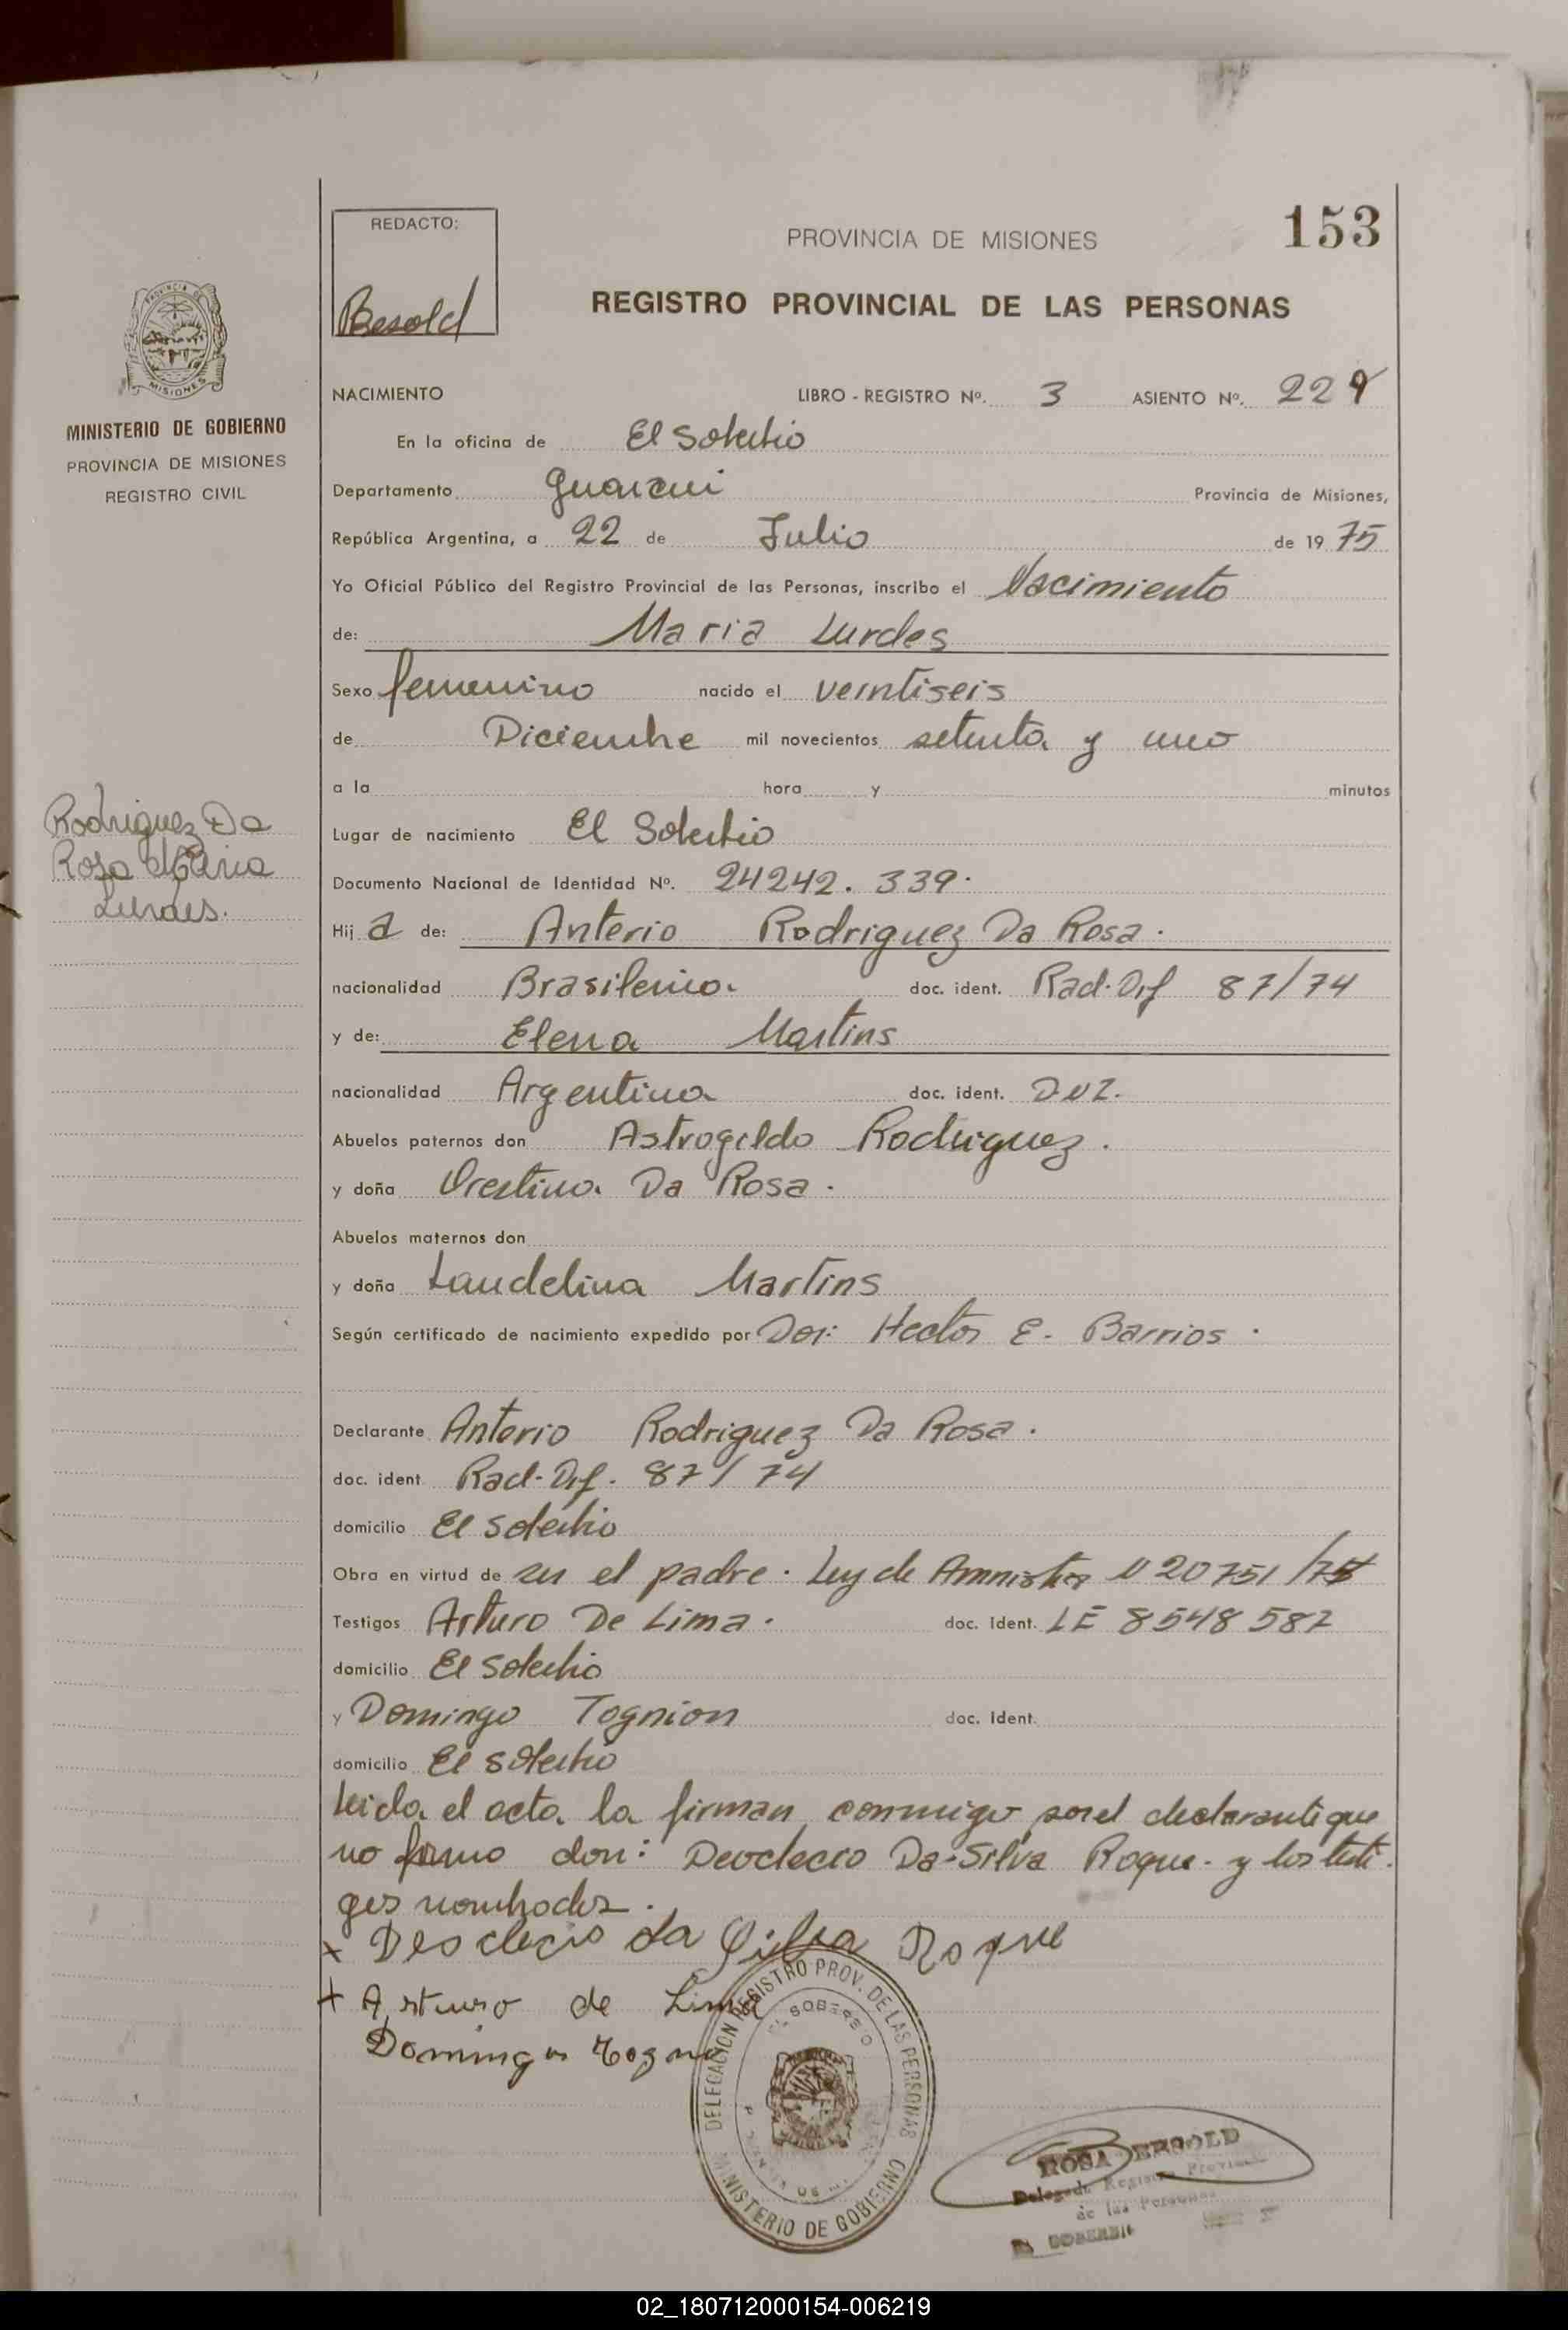 REDACTO:
Besold
PROVINCIA DE MISIONES
153
REGISTRO PROVINCIAL DE LAS PERSONAS
PROVINCIA DE
MISIONES
MINISTERIO DE GOBIERNO
PROVINCIA DE MISIONES
REGISTRO CIVIL
NACIMIENTO LIBRO - REGISTRO Nº. 3 ASIENTO Nº. 229
En la oficina de El Soberbio
Departamento Guarani Provincia de Misiones,
República Argentina, a 22 de Julio de 19 75
Yo Oficial Público del Registro Provincial de las Personas, inscribo el Nacimiento
de: Maria Lurdes
Sexo femenino nacido el veintiseis
de Diciembre mil novecientos setenta y uno
a la hora y minutos
Rodriguez Da
Rosa Maria
Lurdes.
Lugar de nacimiento El Soberbio
Documento Nacional de Identidad Nº. 24242.339.
Hij a de: Anterio Rodriguez Da Rosa.
nacionalidad Brasilenia. doc. ident. Rad-Dif 87/74
y de: Elena Martins
nacionalidad Argentina doc. ident.
Abuelos paternos don Astrogildo Rodriguez.
y doña Orestina Da Rosa.
Abuelos maternos don
y doña Laudelina Martins
Según certificado de nacimiento expedido por Dor: Hector E. Barrios.
Declarante Anterio Rodriguez Da Rosa.
doc. ident. Rad-Dif. 87/74
domicilio El Soberbio
Obra en virtud de ser el padre. Ley de Amnistia N 20751/75
Testigos Arturo De Lima. doc. Ident. LE 8548587
domicilio El Soberbio
y Domingo Tognion doc. Ident.
domicilio El Soberbio
Leida el acta la firman conmigo por el declarante que
no firmo don: Deoclecio Da-Silva Roque. y los testi-
gos nombrados.
x Deoclecio da Silva Roque
+ Arturo de Lima
Domingo
DELEGACION REGISTRO PROV. DE LAS PERSONAS
EL SOBERBIO
MINISTERIO DE GOBIERNO
ROSA BESOLD
Delegada Registro Provincial
de las Personas
EL SOBERBIO
02_180712000154-006219